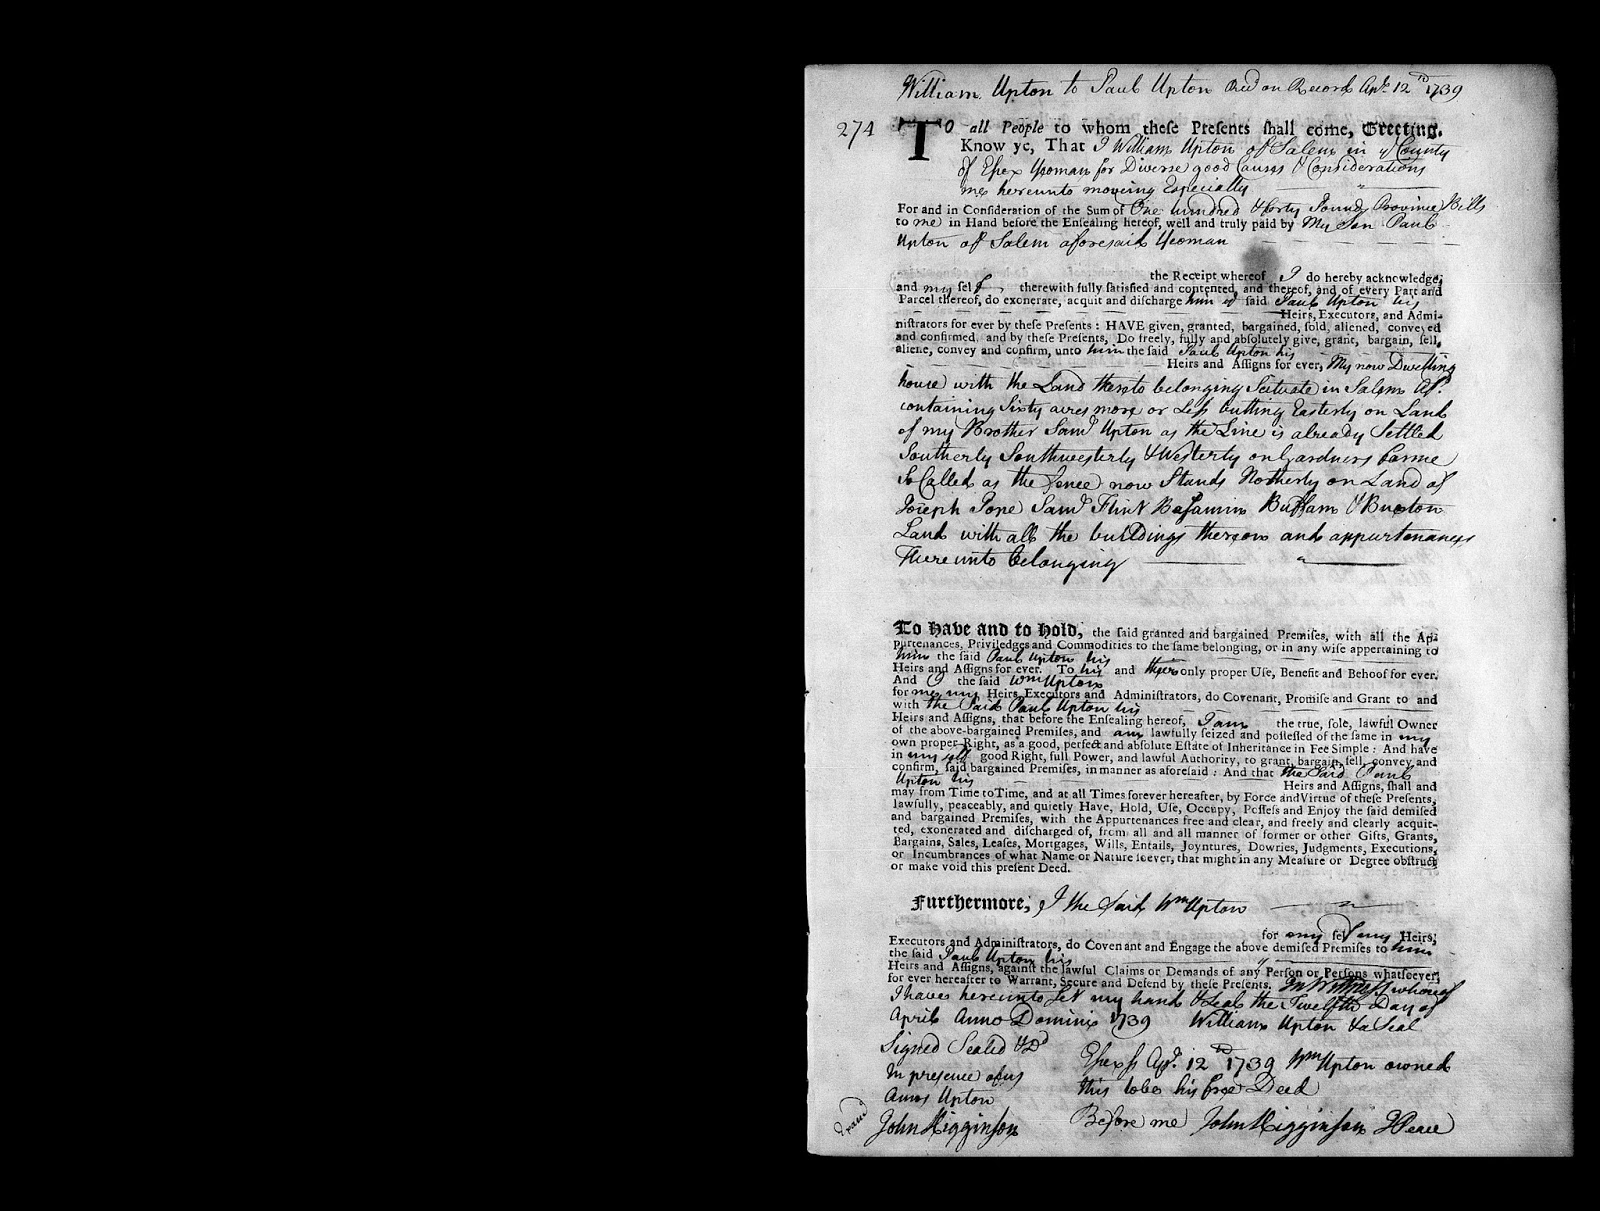 William Upton to Paul Upton Recd on Record Apr. 12th 1739
274
TO all People to whom these Presents shall come, Greeting.
Know ye, That I William Upton of Salem in ye County
of Essex Yeoman for Diverse good Causes & Considerations
me hereunto moveing Especially
For and in Consideration of the Sum of One hundred & forty Pounds Province Bills
to me in Hand before the Ensealing hereof, well and truly paid by My Son Paul
Upton of Salem aforesaid Yeoman
the Receipt whereof I do hereby acknowledge,
and my self therewith fully satisfied and contented, and thereof, and of every Part and
Parcel thereof, do exonerate, acquit and discharge him ye said Paul Upton his
Heirs, Executors, and Admi-
nistrators for ever by these Presents: HAVE given, granted, bargained, sold, aliened, conveyed
and confirmed, and by these Presents, Do freely, fully and absolutely give, grant, bargain, sell,
aliene, convey and confirm, unto him the said Paul Upton his
Heirs and Assigns for ever, My now Dwelling
house with the Land thereto belonging Scituate in Salem afd.
containing Sixty acres more or Less butting Easterly on Land
of my Brother Samll Upton as the Line is already Settled
Southerly Southwesterly & Westerly on Gardners Farme
So Called as the fence now Stands Northerly on Land of
Joseph Pope Samll Flint Benjamin Buffam & Buxton
Land with all the buildings thereon and appurtenances
Thereunto belonging
To Have and to Hold, the said granted and bargained Premises, with all the Ap-
purtenances, Priviledges and Commodities to the same belonging, or in any wise appertaining to
him the said Paul Upton his
Heirs and Assigns for ever. To his and their only proper Use, Benefit and Behoof for ever.
And I the said Wm Upton
for me, my Heirs, Executors and Administrators, do Covenant, Promise and Grant to and
with the Said Paul Upton his
Heirs and Assigns, that before the Ensealing hereof, I am the true, sole, lawful Owner
of the above-bargained Premises, and am lawfully seized and possessed of the same in my
own proper Right, as a good, perfect and absolute Estate of Inheritance in Fee Simple: And have
in my self good Right, full Power, and lawful Authority, to grant, bargain, sell, convey and
confirm, said bargained Premises, in manner as aforesaid: And that the Said Paul
Upton his Heirs and Assigns, shall and
may from Time to Time, and at all Times forever hereafter, by Force and Virtue of these Presents,
lawfully, peaceably, and quietly Have, Hold, Use, Occupy, Possess and Enjoy the said demised
and bargained Premises, with the Appurtenances free and clear, and freely and clearly acquit-
ted, exonerated and discharged of, from all and all manner of former or other Gifts, Grants,
Bargains, Sales, Leases, Mortgages, Wills, Entails, Joyntures, Dowries, Judgments, Executions,
or Incumbrances of what Name or Nature soever, that might in any Measure or Degree obstruct
or make void this present Deed.
Furthermore, I the Said Wm Upton
for my self my Heirs,
Executors and Administrators, do Covenant and Engage the above demised Premises to him
the said Paul Upton his
Heirs and Assigns, against the lawful Claims or Demands of any Person or Persons whatsoever,
for ever hereafter to Warrant, Secure and Defend by these Presents. In Witness whereof
I have hereunto Set my hand & Seal the Twelfth Day of
April Anno Domini 1739 William Upton & a Seal
Signed Sealed & Dd
In presence of us
Amos Upton
John Higginson
Essex ss Apr. 12th 1739 Wm Upton owned
this to be his free Deed
Before me John Higginson J Peace